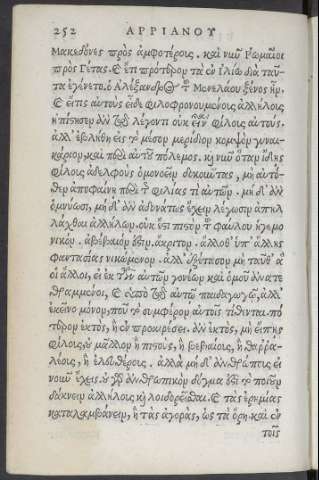 252 ΑΡΡΙΑΝΟΥ
Μακεδόνες πρὸς ἀμφοτέροις. καὶ νῦν Ῥωμαῖοι
πρὸς Γέτας. καὶ ἔτι πρότερον τὰ ἐν ἰλίῳ διὰ ταῦ-
τα ἐγένετο. ὁ Ἀλέξανδρος τοῦ Μενελάου ξένος ἦν.
καὶ εἴτις αὐτοὺς εἶδε φιλοφρονουμένοις ἀλλήλοις
ἠπίστησεν ἂν τῷ λέγοντι οὐκ εἶναι φίλοις αὐτούς.
ἀλλ' ἐβλήθη εἰς τὸ μέσον μερίδιον κομψὸν γυναι-
κάριον, καὶ περὶ αὐτοῦ πόλεμος. καὶ νῦν ὅταν ἴδῃς
φίλοις ἀδελφοὺς ὁμονοεῖν δοκοιῶτας, μὴ αὐτό-
θεν ἀποφαίνῃ περὶ τῆς φιλίας τὶ αὐτῶν. μὴ δ' ἂν
ὀμνύωσι, μὴ δ' ἂν ἀδυνάτως ἔχειν λέγωσιν ἀπηλ
λάχθαι ἀλλήλων. οὐκ ἔστι πιστὸν τὸ τοῦ φαύλου ἡγεμο
νικὸν. ἀβέβαιόν ἐστιν, ἄκριτον. ἄλλοθ' ὑπ' ἄλλης
φαντασίας νικώμενον. ἀλλ' ἐξέτασον μὴ ταῦθ' ἃ
οἱ ἄλλοι, εἰ ἐκ τῶν αὐτῶν γονέων καὶ ὁμοῦ ἀνατε
θραμμένοι, καὶ ὑπὸ τῷ αὐτῷ παιδαγωγῷ, ἀλλ'
ἐκεῖνο μόνον, ποῦ τὸ συμφέρον αὐτοῖς τίθενται. πό
τερον ἐκτὸς, ἢ ἐν προαιρέσει. ἂν ἐκτὸς, μὴ εἴπῃς
φίλοις, οὐ μᾶλλον ἢ πιστοὺς, ἢ βεβαίοις, ἢ θαῤῥα-
λέοις, ἢ ἐλευθέροις. ἀλλὰ μὴ δ' ἀνθρώποις εἰ
νοιῶ ἔχεις. οὐ γὰρ ἀνθρωπικὸν δόγμα ἐστὶ τὸ ποιοῦν
δάκνειν ἀλλήλοις καὶ λοιδορεῖσθαι. καὶ τὰς ἐρημίας
καταλαμβάνειν, ἢ τὰς ἀγορὰς, ὡς τὰ ὄρη. καὶ ἐν
τοῖς